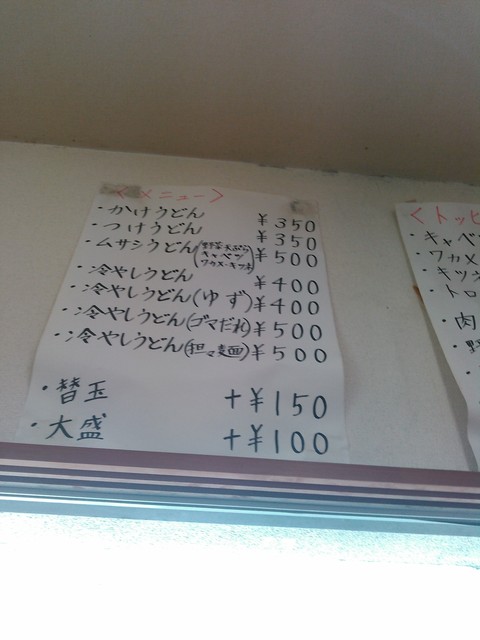 <メニュー>
・かけうどん ¥350
・つけうどん ¥350
・ムサシうどん(野菜天ぷら キャベツ ワカメ・キツネ) ¥500
・冷やしうどん ¥400
・冷やしうどん(ゆず) ¥400
・冷やしうどん(ゴマだれ) ¥500
・冷やしうどん(担々麺) ¥500
・替玉 +¥150
・大盛 +¥100
<トッピ
・キャベ
・ワカメ
・キツネ
・トロ
・肉